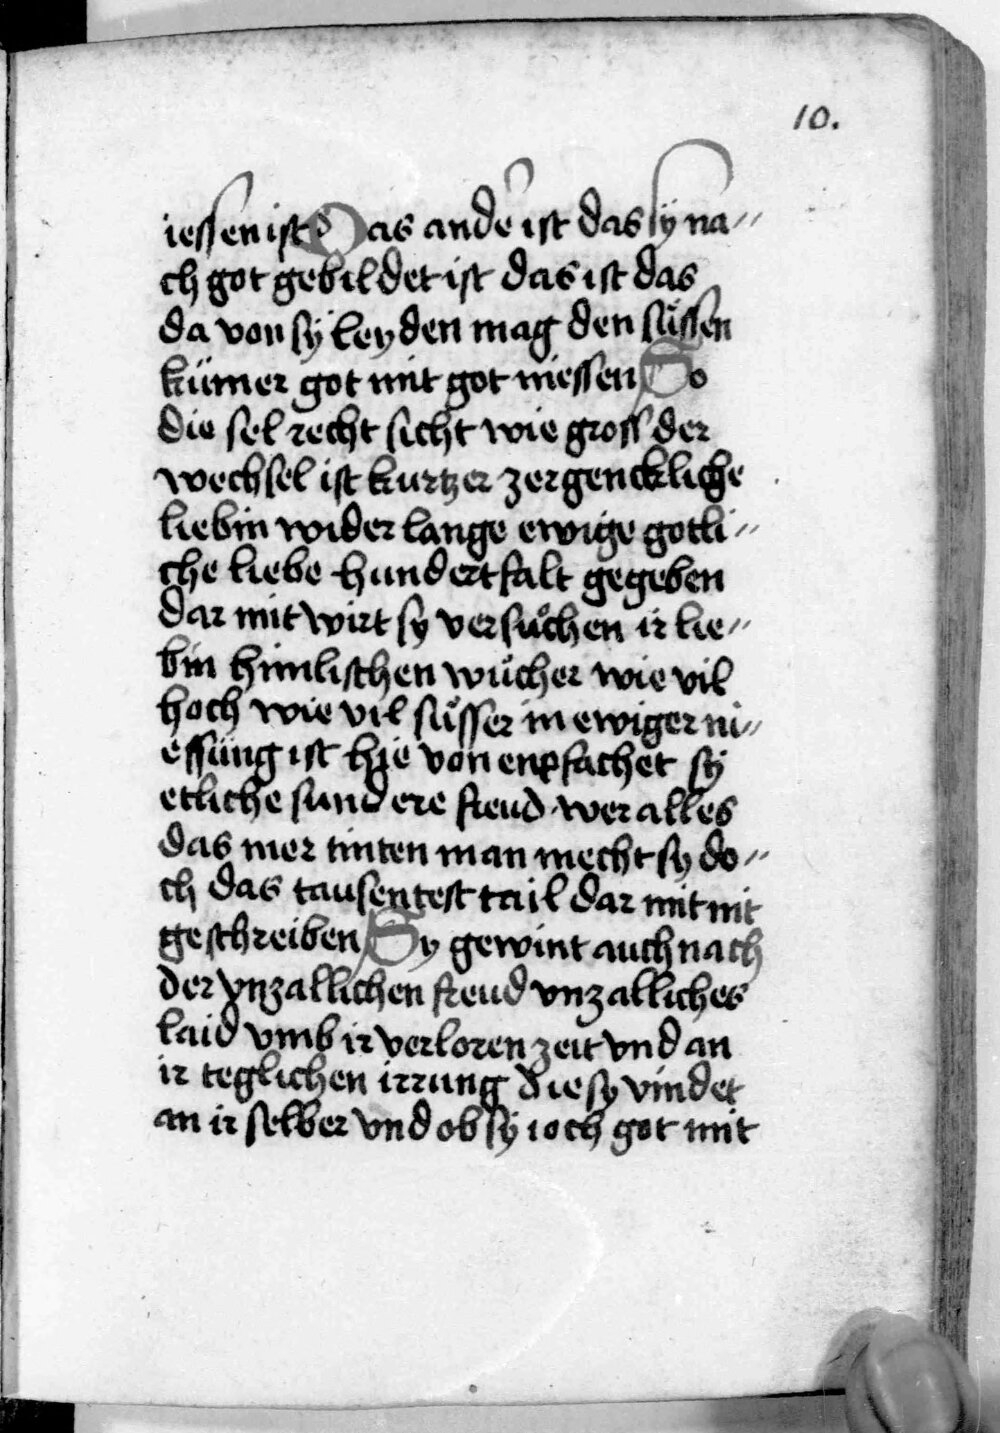 10.
iessen ist Das ander ist das sÿ na„
ch got gebildet ist das ist das
da von sÿ leyden mag den sůssen
kümer got mit got niessen So
die sel recht sicht wie gross der
wechsel ist kurtzer zergenckliche
liebin wider lange ewige gotli„
che liebe hundertfalt gegeben
dar mit wirt sy versůchen ir lie„
bin himlischen wůcher wie vil
hoch wie vil sůsser in ewiger ni„
essung ist hie von enpfachet sÿ
etliche sundere freud wer alles
das mer tinten man mecht sy do„
ch das tausentest tail dar mit nit
geschreiben Sy gewint auch nach
der vnzallichen freud vnzalliches
laid vmb ir verloren zeit vnd an
ir teglichen irrung die sy vindet
an ir selber vnd ob sÿ ioch got mit